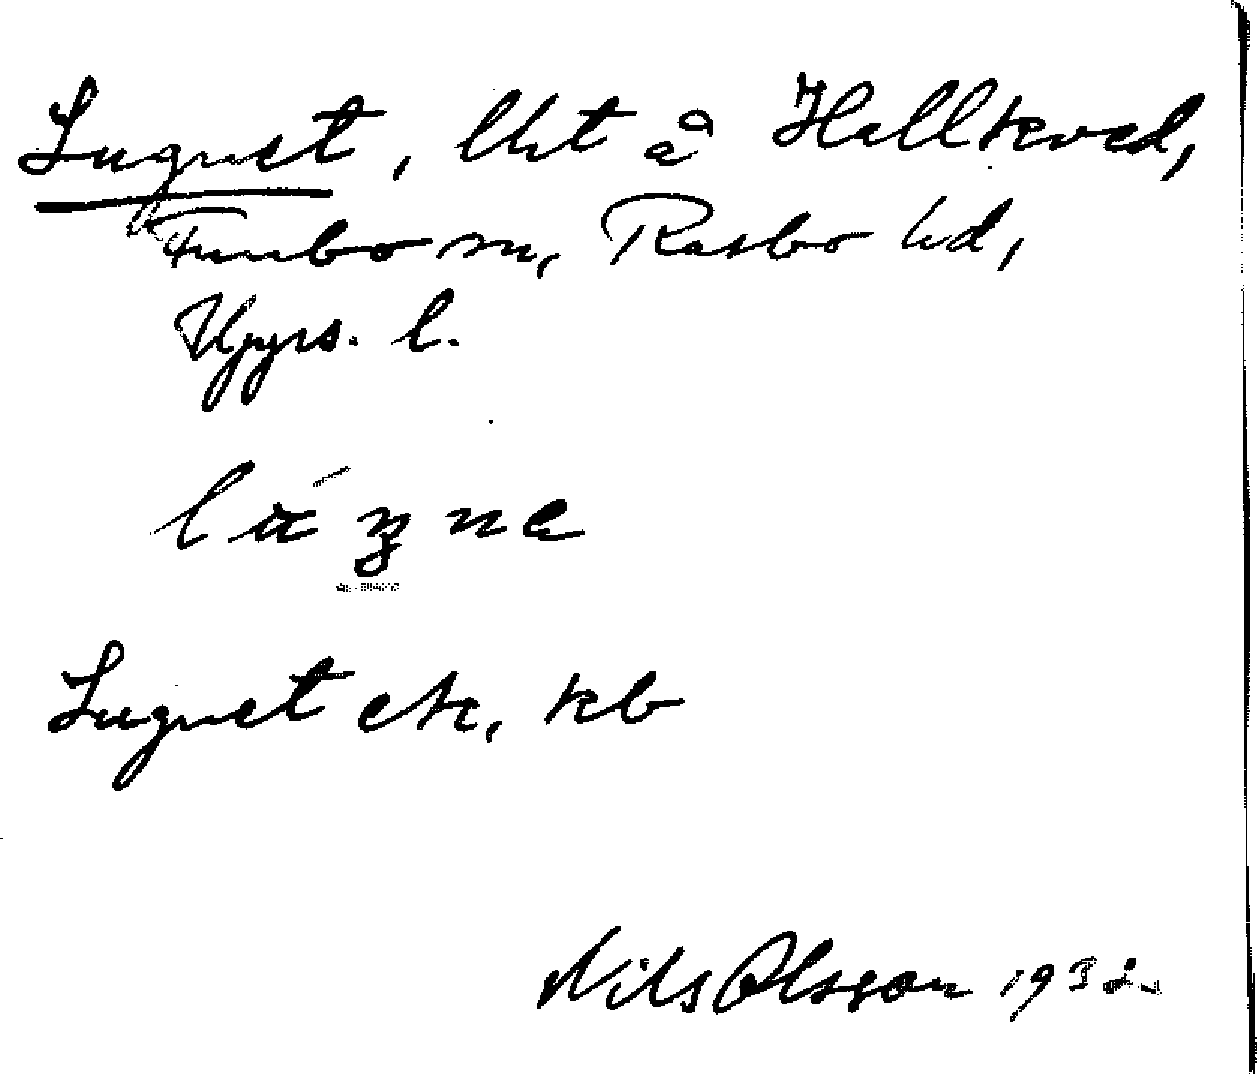 Lugnet, lht å Hallkved,
Funbo sn, Rasbo hd,
Upps. l.
Lugnet ek, kb
Nils Olsson 1932